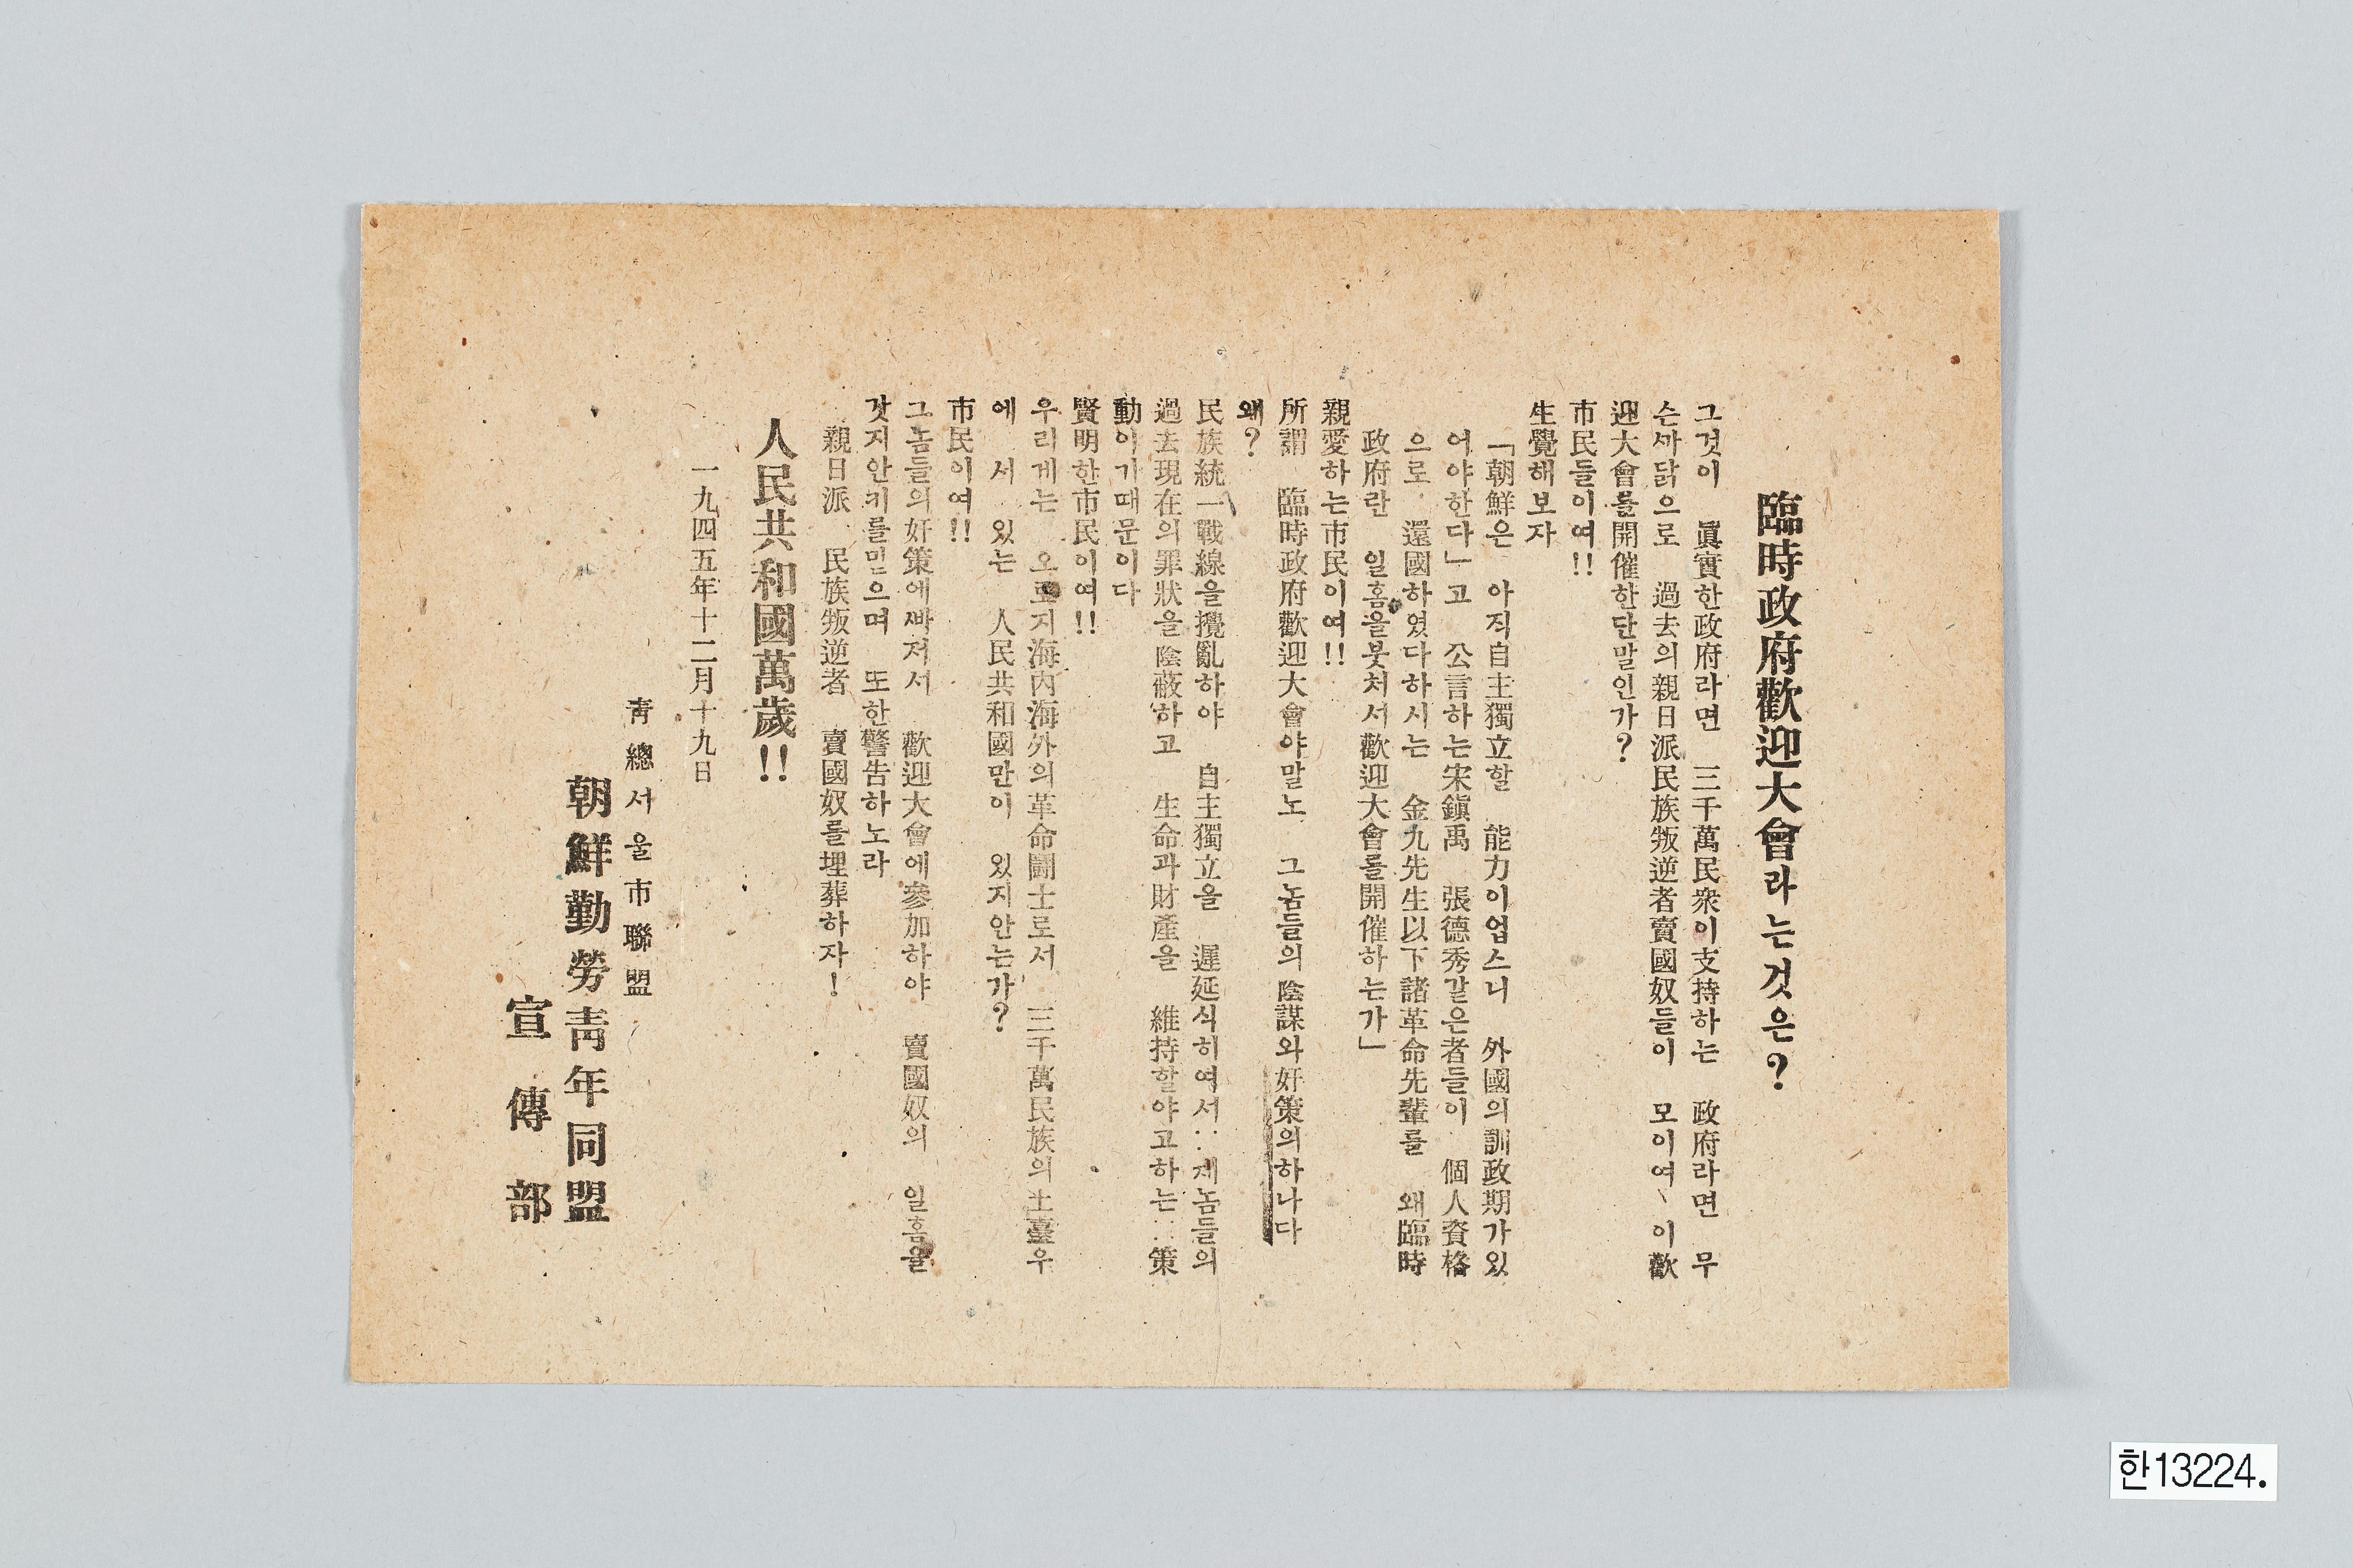 臨時政府歡迎大會라는것은?
그것이 眞實한政府라면 三千萬民衆이支持하는 政府라면 무
슨까닭으로 過去의親日派民族叛逆者賣國奴들이 모이여、이歡
迎大會를開催한단말인가?
市民들이여!!
生覺해보자
「朝鮮은 아직自主獨立할 能力이업스니 外國의訓政期가있
어야한다」고 公言하는宋鎭禹 張德秀같은者들이 個人資格
으로 還國하였다하시는 金九先生以下諸革命先輩를 왜臨時
政府란 일홈을붓처서歡迎大會를開催하는가」
親愛하는市民이여!!
所謂 臨時政府歡迎大會야말노 그놈들의陰謀와奸策의하나다
왜?
民族統一戰線을攪亂하야 自主獨立을 遲延식히여서‥제놈들의
過去現在의罪狀을陰蔽하고 生命과財產을 維持할야고하는‥策
動이기때문이다
賢明한市民이여!!
우리게는 오로지海內海外의革命鬪士로서 三千萬民族의土臺우
에 서 있는 人民共和國만이 있지안는가?
市民이여!!
그놈들의奸策에빠저서 歡迎大會에參加하야 賣國奴의 일홈을
갓지안키를믿으며 또한警告하노라
親日派 民族叛逆者 賣國奴를埋葬하자!
人民共和國萬歲!!
一九四五年十二月十九日
靑總서울市聯盟
朝鮮勤勞靑年同盟
宣傳部
한13224.